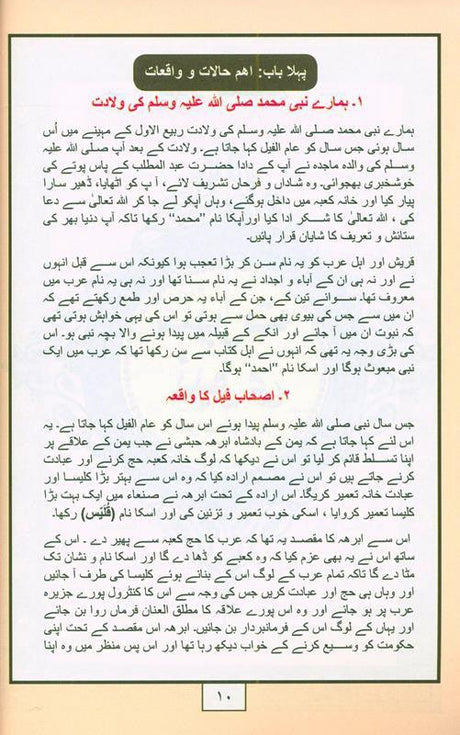 پہلا باب: اھم حالات و واقعات
۱۔ ہمارے نبی محمد صلی اللہ علیہ وسلم کی ولادت
ہمارے نبی محمد صلی اللہ علیہ وسلم کی ولادت ربیع الاول کے مہینے میں اُس
سال ہوئی جس سال کو عام الفیل کہا جاتا ہے۔ ولادت کے بعد آپ صلی اللہ علیہ
وسلم کی والدہ ماجدہ نے آپ کے دادا حضرت عبد المطلب کے پاس پوتے کی
خوشخبری بھجوائی۔ وہ شاداں و فرحاں تشریف لائے، آ پ کو اٹھایا، ڈھیر سارا
پیار کیا اور خانہ کعبہ میں داخل ہوگئے، وہاں آپکو لے جا کر اللہ تعالیٰ سے دعا
کی ، اللہ تعالیٰ کا شکر ادا کیا اورآپکا نام ”محمد“ رکھا تاکہ آپ دنیا بھر کی
ستائش و تعریف کا شایان قرار پائیں۔
قریش اور اہل عرب کو یہ نام سن کر بڑا تعجب ہوا کیونکہ اس سے قبل انہوں
نے اور نہ ہی ان کے آباء و اجداد نے یہ نام سنا تھا اور نہ ہی یہ نام عرب میں
معروف تھا۔ سوائے تین کے، جن کے آباء یہ حرص اور طمع رکھتے تھے کہ
ان میں سے جس کی بیوی بھی حمل سے ہوتی تو اس کی یہی خواہش ہوتی تھی
کہ نبوت ان میں آ جائے اور انکے کے قبیلہ میں پیدا ہونے والا بچہ نبی ہو۔ اس
کی بڑی وجہ یہ تھی کہ انہوں نے اہل کتاب سے سن رکھا تھا کہ عرب میں ایک
نبی مبعوث ہوگا اور اسکا نام ”احمد“ ہوگا۔
۲۔ اصحاب فیل کا واقعہ
جس سال نبی صلی اللہ علیہ وسلم پیدا ہوئے اس سال کو عام الفیل کہا جاتا ہے۔ یہ
اس لئے کہا جاتا ہے کہ یمن کے بادشاہ ابرھہ حبشی نے جب یمن کے علاقے پر
اپنا تسلط قائم کر لیا تو اس نے دیکھا کہ لوگ خانہ کعبہ حج کرنے اور عبادت
کرنے جاتے ہیں تو اس نے مصمم ارادہ کیا کہ وہ اس سے بہتر بڑا کلیسا اور
عبادت خانہ تعمیر کریگا۔ اس ارادہ کے تحت ابرھہ نے صنعاء میں ایک بہت بڑا
کلیسا تعمیر کروایا ، اسکی خوب تعمیر و تزئین کی اور اسکا نام (قُلَّیْس) رکھا۔
اس سے ابرھہ کا مقصد یہ تھا کہ عرب کا حج کعبہ سے پھیر دے ۔ اس کے
ساتھ اس نے یہ بھی عزم کیا کہ وہ کعبے کو ڈھا دے گا اور اسکا نام و نشان تک
مٹا دے گا تاکہ تمام عرب کے لوگ اس کے بنائے ہوئے کلیسا کی طرف آ جائیں
اور وہاں ہی حج اور عبادت کریں جس کی وجہ سے اس کا کنٹرول پورے جزیرہ
عرب پر ہو جائے اور وہ اس پورے علاقہ کا مطلق العنان فرماں روا بن جائے
اور یہاں کے لوگ اس کے فرمانبردار بن جائیں۔ ابرھہ اس مقصد کے تحت اپنی
حکومت کو وسیع کرنے کے خواب دیکھ رہا تھا اور اس پس منظر میں وہ اپنا
۱۰